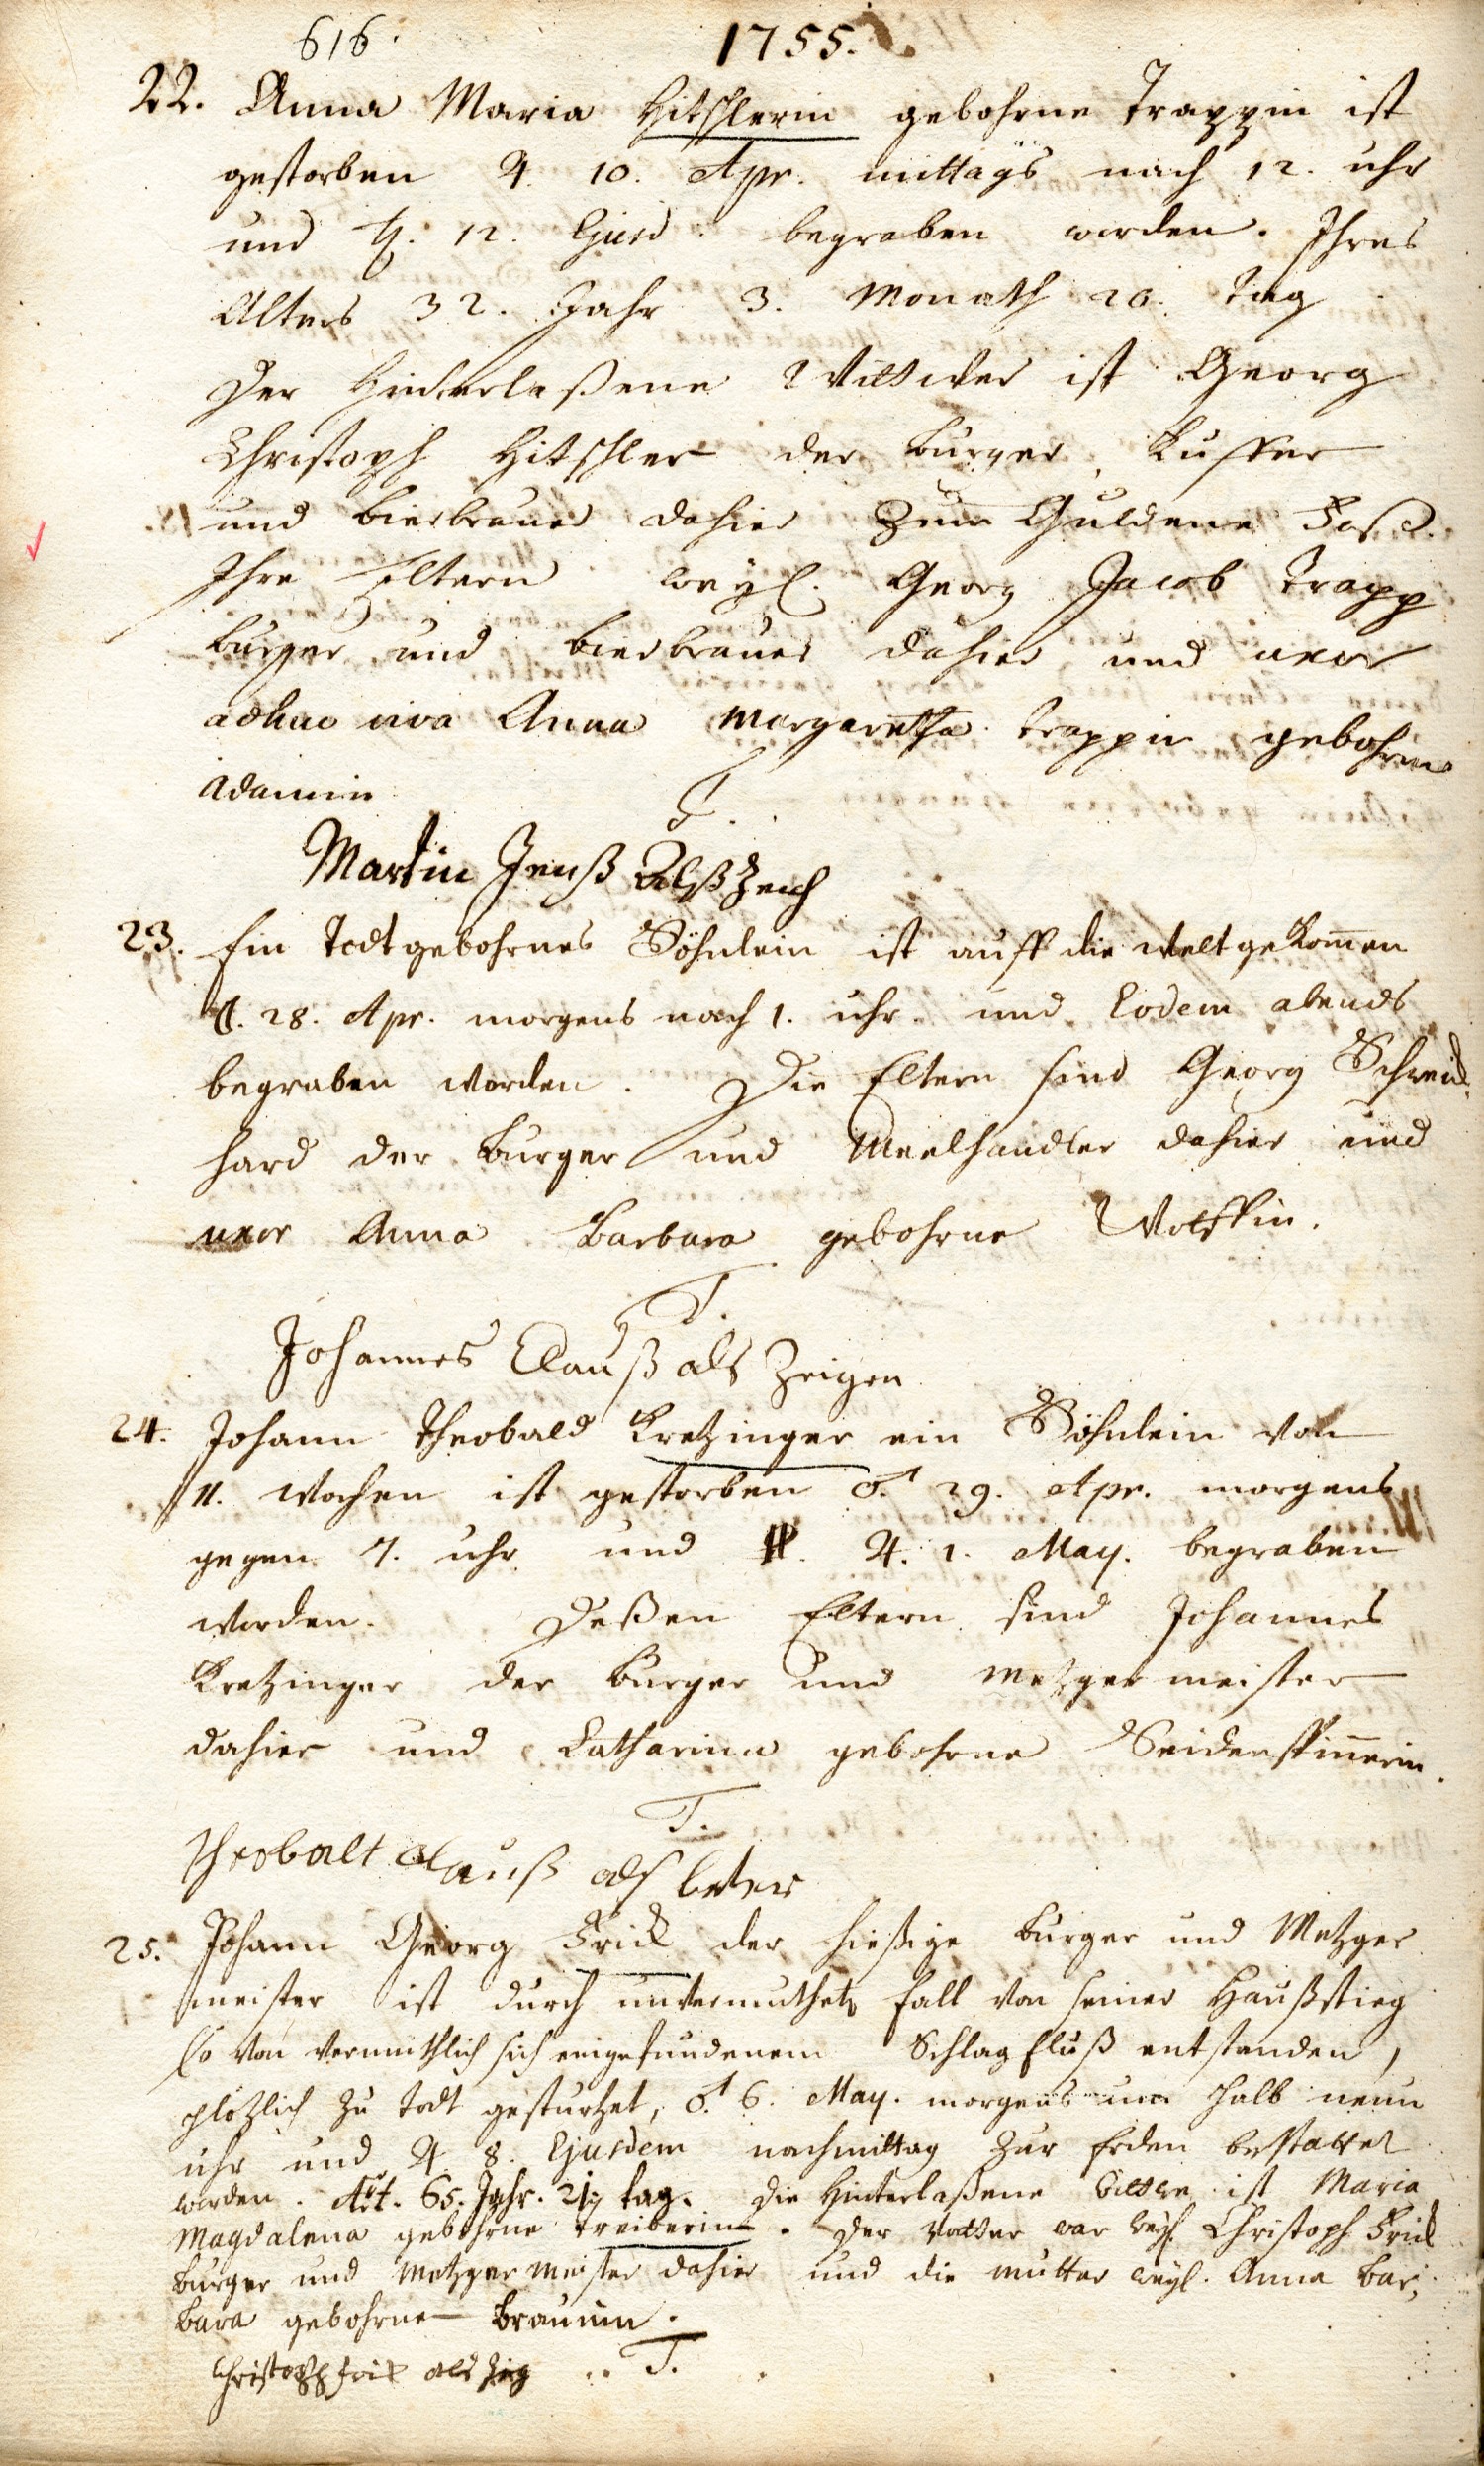 616.
1755.
22. Anna Maria Hitschlerin gebohrne Trappin ist
gestorben ♃ 10. Apr. mittags nach 12. uhr
und ♄. 12. Ejusd. begraben worden. Ihres
Alters 32. Jahr 3. Monath 20. tag
Der Hinderlaßene Wittwer ist Georg
Christoph Hitschler der burger, Kuffer
und bierbrauer dahier Zum Guldene Faß.
Ihre Eltern weyl. Georg Jacob Trapp
burger und bierbrauer dahier und uxor
adhuc viva Anna Margaretha trappin gebohrne
Adamin
T.
Martin
23. Ein Todtgebohrnes Söhnlein ist auff die welt gekom̄en
☾. 28. Apr. morgens nach 1. uhr und Eodem abends
begraben worden. Die Eltern sind Georg Schweid
hard der Burger und Meelhandler dahier und
uxor Anna Barbara gebohrne Wolffin.
T.
Johannes Clauß als Zeigen
24. Johann Theobald Kretzinger ein Söhnlein von
11. Wochen ist gestorben ♂. 29. Apr. morgens
gegen 7. uhr und ♃. 1. May. begraben
worden. Deßen Eltern sind Johannes
Kretzinger der burger und Metzger meister
dahier und Catharina gebohrne Seidenspin̄erin.
T.
Theobalt Clauß als
25. Johann Georg Frick der hießige burger und Metzger
meister ist durch unvermuthete fall von seiner Haußstieg
so von vermuthlich sich eingefundenem Schlagfluß entstanden,
plötzlich zu todt gesturtzet, ♂. 6. May. morgens um halb neun
uhr und ♃ 8. Ejusdem nachmittag zur Erden bestattet
worden. Aet. 65. Jahr. tag. Die Hinterlaßene ist Maria
Magdalena gebohrne Treiberin. Der Vatter war weyl. Christoph Frick
burger und Metzger Meister dahier und die mutter weyl. Anna Bar,
bara gebohrne Braunin.
Christoph frik als zeig T.